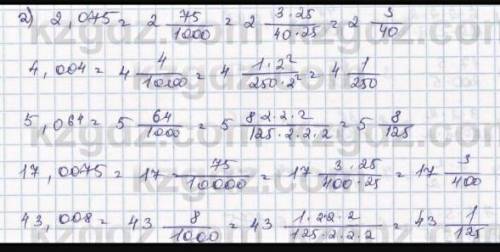 2) 2,075 = 2 75/1000 = 2 3·25/40·25 = 2 3/40
4,004 = 4 4/1000 = 4 1·2²/250·2² = 4 1/250
5,064 = 5 64/1000 = 5 8·2·2·2/125·2·2·2 = 5 8/125
17,0075 = 17 75/10000 = 17 3·25/400·25 = 17 3/400
43,008 = 43 8/1000 = 43 1·2·2·2/125·2·2·2 = 43 1/125